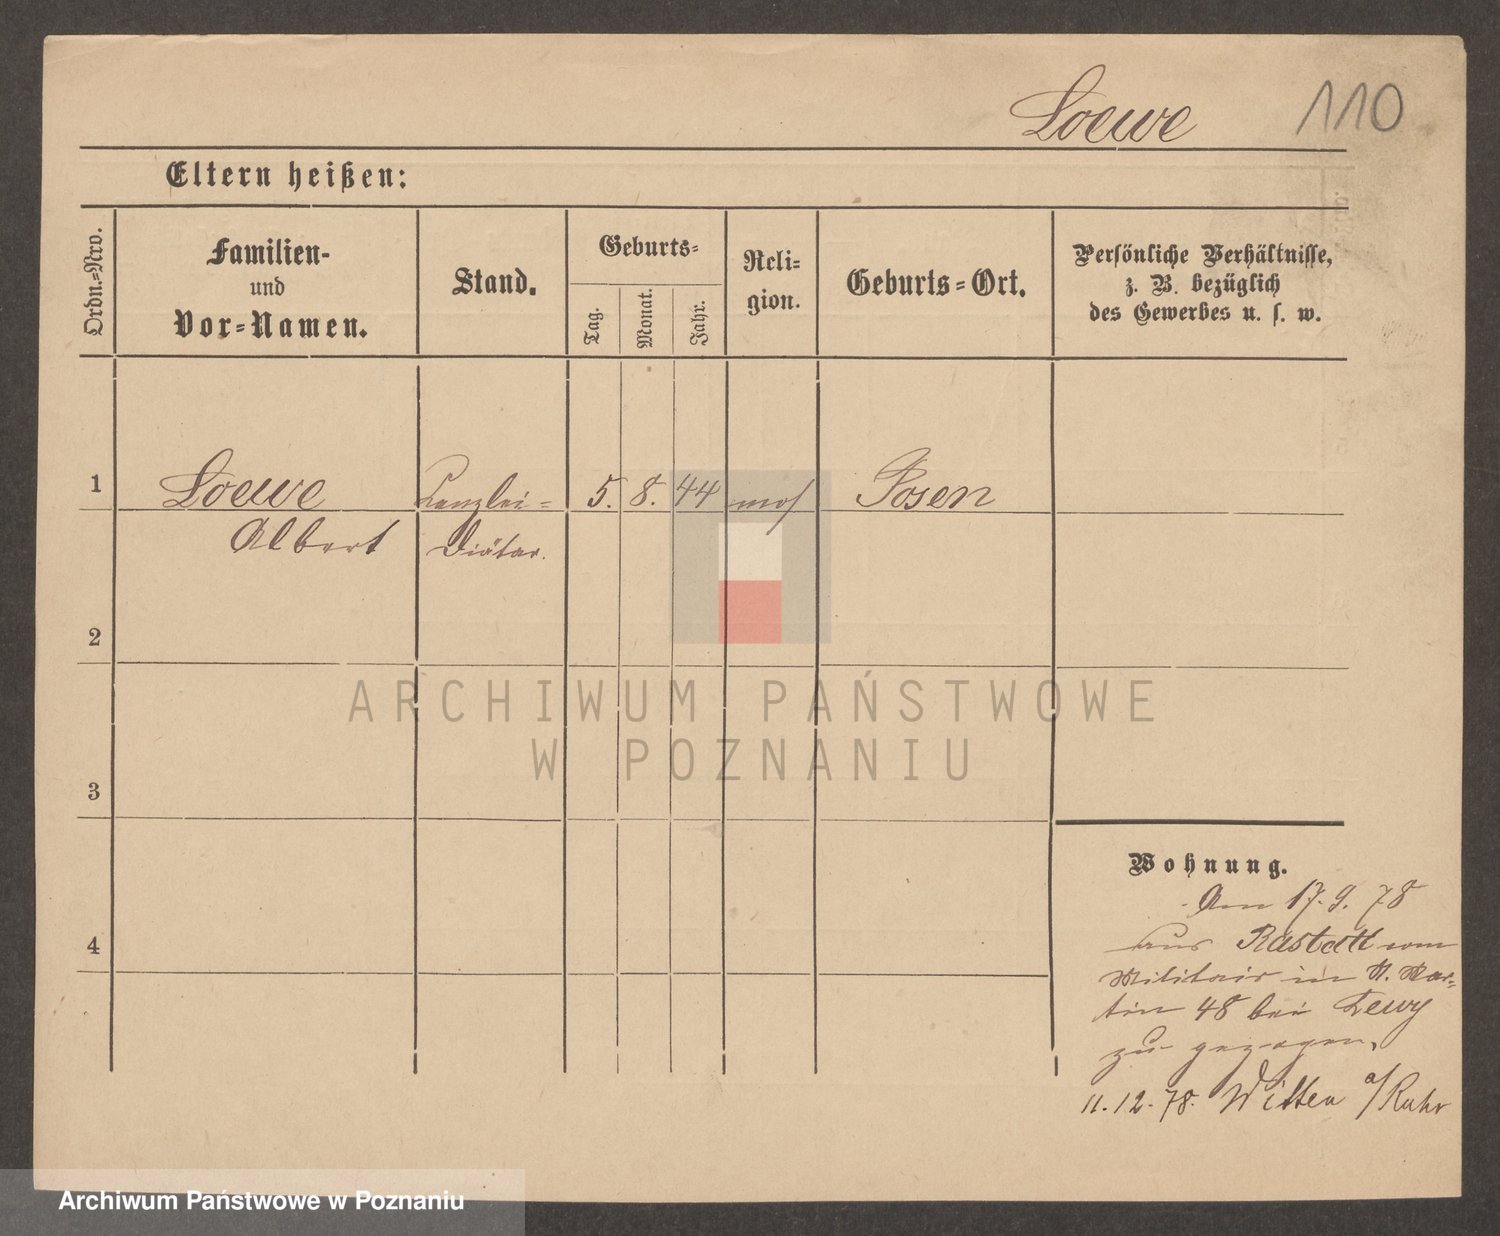 Loewe 110
Eltern heißen:
Ordn.-Nro.
Familien-
und
Vor-Namen.
Stand.
Geburts-
Tag.
Monat.
Jahr.
Reli-
gion.
Geburts-Ort.
Persönliche Verhältnisse,
z. B. bezüglich
des Gewerbes u. s. w.
1 Loewe Kanzlei- 5. 8. 44 mos Posen
Albert Diätar.
2
3
4
Wohnung.
Am 17. 9. 78
aus Rastatt vom
Militair in St. Mar-
tin 48 bei Lewy
zu gezogen.
11.12.78. Witten a/Ruhr
ARCHIWUM PAŃSTWOWE
W POZNANIU
Archiwum Państwowe w Poznaniu